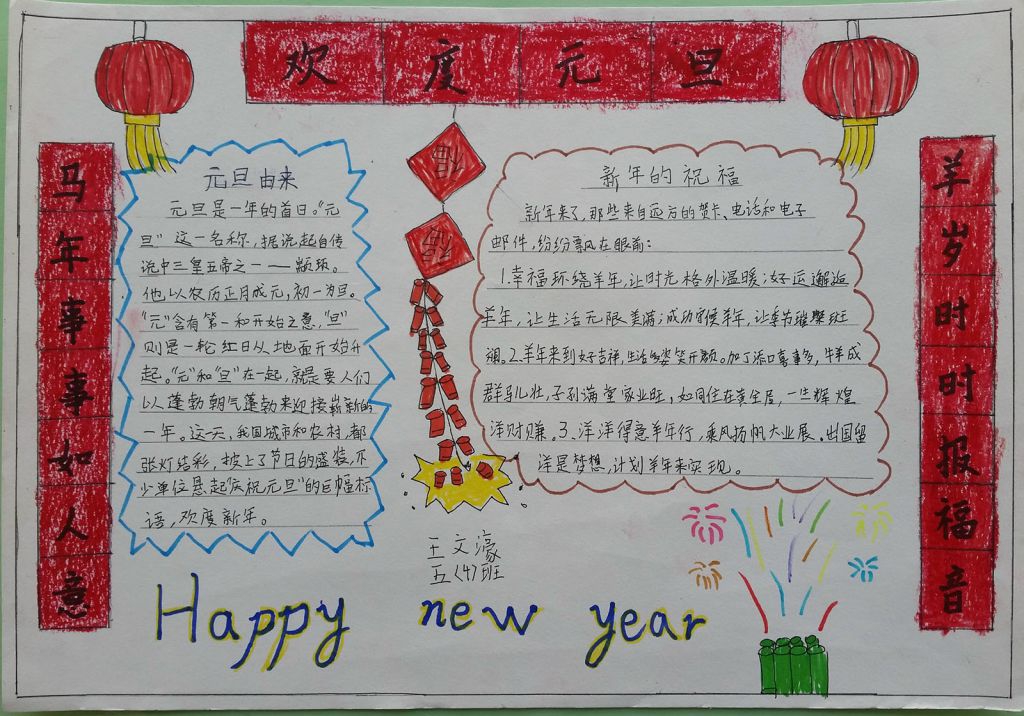 欢度元旦
马年事事如人意
元旦由来
元旦是一年的首日。“元
旦”这一名称，据说起自传
说中三皇五帝之一——颛顼。
他以农历正月成元，初一为旦。
“元”含有第一和开始之意，“旦”
则是一轮红日从地面开始升
起。“元”和“旦”在一起，就是要人们
以蓬勃朝气蓬勃来迎接崭新的
一年。这一天，我国城市和农村，都
张灯结彩，披上了节日的盛装，不
少单位悬起“庆祝元旦”的巨幅标
语，欢度新年。
福
福
新年的祝福
新年来了，那些来自远方的贺卡、电话和电子
邮件，纷纷飘在眼前：
1.幸福环绕羊年，让时光格外温暖；好运邂逅
羊年，让生活无限美满；成功守候羊年，让季节璀璨斑
斓。2.羊年来到好吉祥，生活多姿笑开颜。加丁添口喜事多，牛羊成
群马儿壮，子孙满堂家业旺，如同住在黄金屋，一生辉煌
洋财赚。3.洋洋得意羊年行，乘风扬帆大业展。出国留
洋是梦想，计划羊年来实现。
羊岁时时报福音
王文濠
五〈4〉班
Happy new year